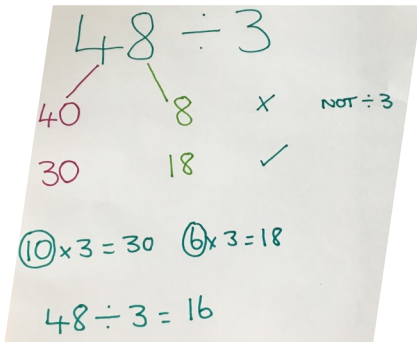 48 ÷ 3
40 8 x NOT ÷ 3
30 18 ✓
10 x 3 = 30 6 x 3 = 18
48 ÷ 3 = 16